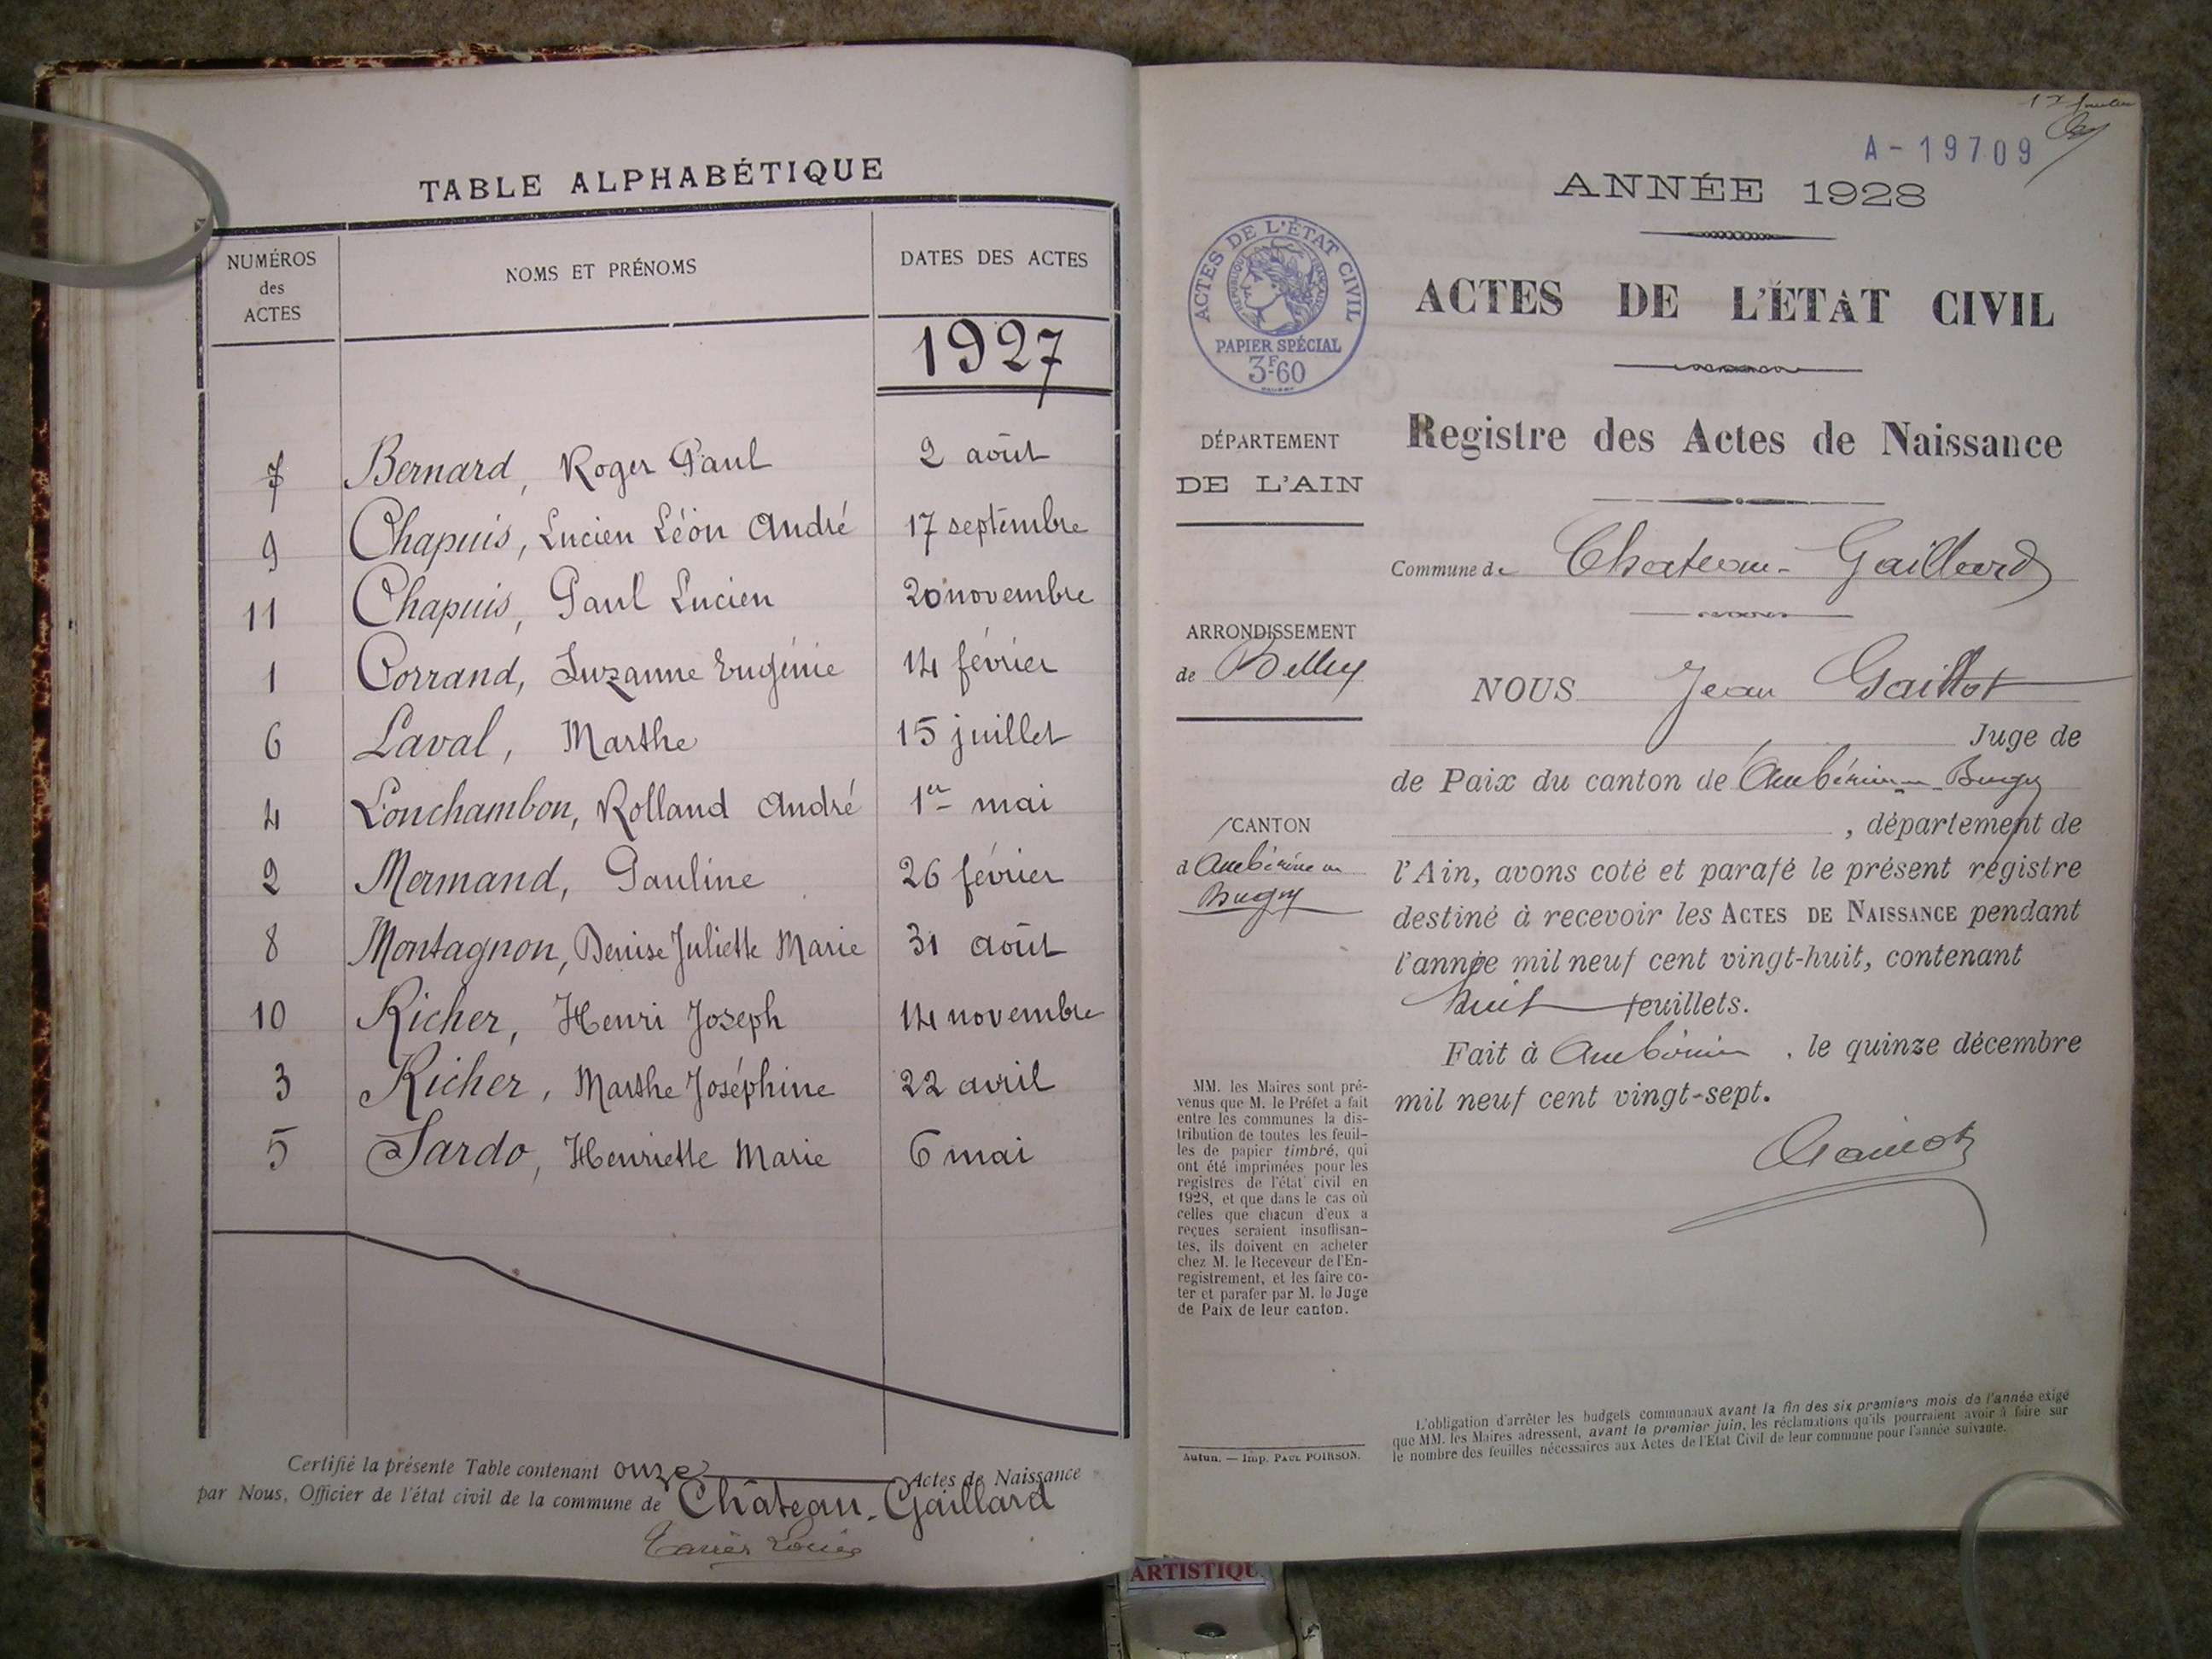 TABLE ALPHABÉTIQUE
NUMÉROS
des
ACTES
NOMS ET PRÉNOMS
DATES DES ACTES
1927
7 Bernard, Roger Paul 2 août
9 Chapuis, Lucien Léon André 17 septembre
11 Chapuis, Paul Lucien 20 novembre
1 Corrand, Suzanne Eugénie 14 février
6 Laval, Marthe 15 juillet
4 Lonchambon, Rolland André 1er mai
2 Mermand, Pauline 26 février
8 Montagnon, Denise Juliette Marie 31 août
10 Richer, Henri Joseph 14 novembre
3 Richer, Marthe Joséphine 22 avril
5 Sardo, Henriette Marie 6 mai
Certifié la présente Table contenant onze Actes de Naissance
par Nous, Officier de l'état civil de la commune de Château-Gaillard
A-19709
ANNÉE 1928
ACTES DE L'ÉTAT CIVIL
RÉPUBLIQUE FRANÇAISE
PAPIER SPÉCIAL
3F60
ACTES DE L'ÉTAT CIVIL
Registre des Actes de Naissance
DÉPARTEMENT
DE L'AIN
Commune de Chateau-Gaillard
ARRONDISSEMENT
de Belley
NOUS Jean Gaillot
Juge de
de Paix du canton de Ambérieu-en-Bugey
, département de
CANTON
d'Ambérieu en
Bugey
l'Ain, avons coté et parafé le présent registre
destiné à recevoir les ACTES DE NAISSANCE pendant
l'année mil neuf cent vingt-huit, contenant
huit feuillets.
Fait à Ambérieu, le quinze décembre
mil neuf cent vingt-sept.
MM. les Maires sont pré-
venus que M. le Préfet a fait
entre les communes la dis-
tribution de toutes les feuil-
les de papier timbré, qui
ont été imprimées pour les
registres de l'état civil en
1928, et que dans le cas où
celles que chacun d'eux a
reçues seraient insuffisan-
tes, ils doivent en acheter
chez M. le Receveur de l'En-
registrement, et les faire co-
ter et parafer par M. le Juge
de Paix de leur canton.
L'obligation d'arrêter les budgets communaux avant la fin des six premiers mois de l'année exige
que MM. les Maires adressent, avant le premier juin, les réclamations qu'ils pourraient avoir à faire sur
le nombre des feuilles nécessaires aux Actes de l'Etat Civil de leur commune pour l'année suivante.
Autun. — Imp. PAUL POIRSON.
ARTISTIQU